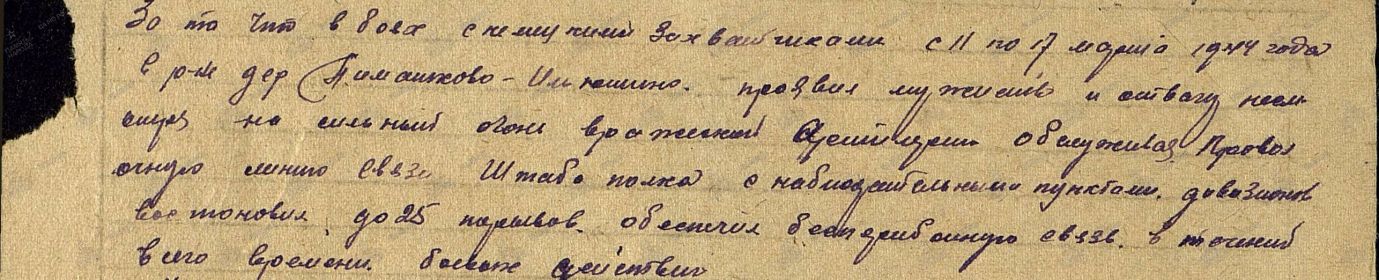 За то что в боях с немецкими захватчиками с 11 по 17 марта 1944 года
в р-не дер Тимашково - Илюшино. проявил мужество и отвагу несм
отря на сильный огонь вражеской Артилерии обслуживая Провол
очную линию связи Штаба полка с наблюдательными пунктами. дивизионов
востоновил до 25 порывов. обеспечил бесперебойную связь. в течений
всего времени. боевых действий